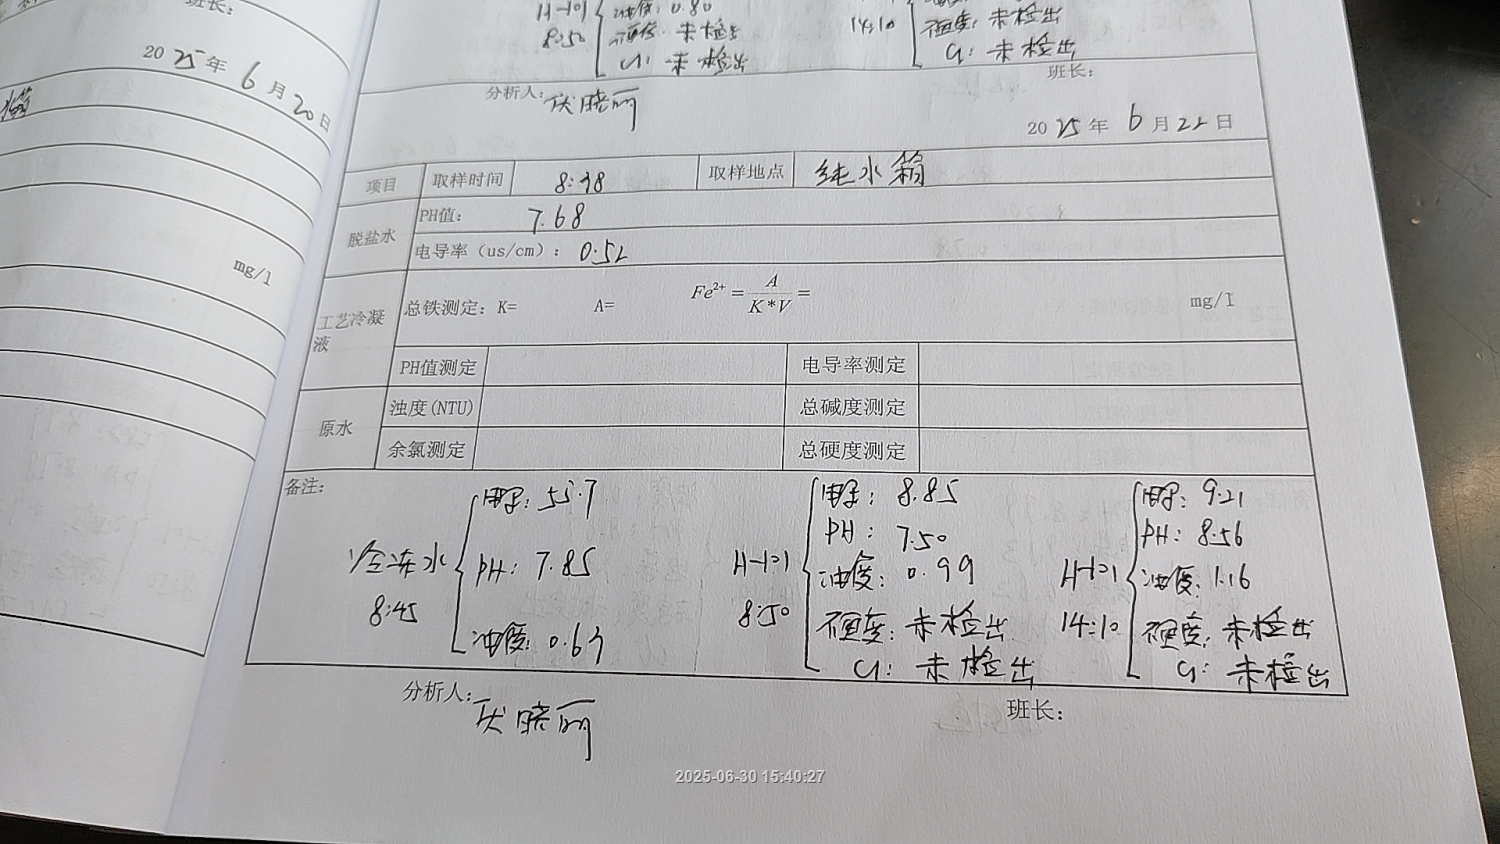 班长：
2025年6月20日
mg/l
H-101 8:50 浊度：0.80
硬度：未检出
Cl：未检出
14:10 硬度：未检出
Cl：未检出
分析人：伏晓丽 班长：
2025年6月22日
项目 取样时间 8:38 取样地点 纯水箱
脱盐水 PH值： 7.68
电导率（us/cm）：0.52
工艺冷凝液 总铁测定：K= A= Fe²⁺=A/K*V= mg/l
PH值测定 电导率测定
原水 浊度(NTU) 总碱度测定
余氯测定 总硬度测定
备注：
冷冻水 8:45
电导：55.7
PH：7.85
浊度：0.63
H-101 8:50
电导：8.85
PH：7.50
浊度：0.99
硬度：未检出
Cl：未检出
H-101 14:10
电导：9.21
PH：8.56
浊度：1.16
硬度：未检出
Cl：未检出
分析人：伏晓丽 班长：
2025-06-30 15:40:27